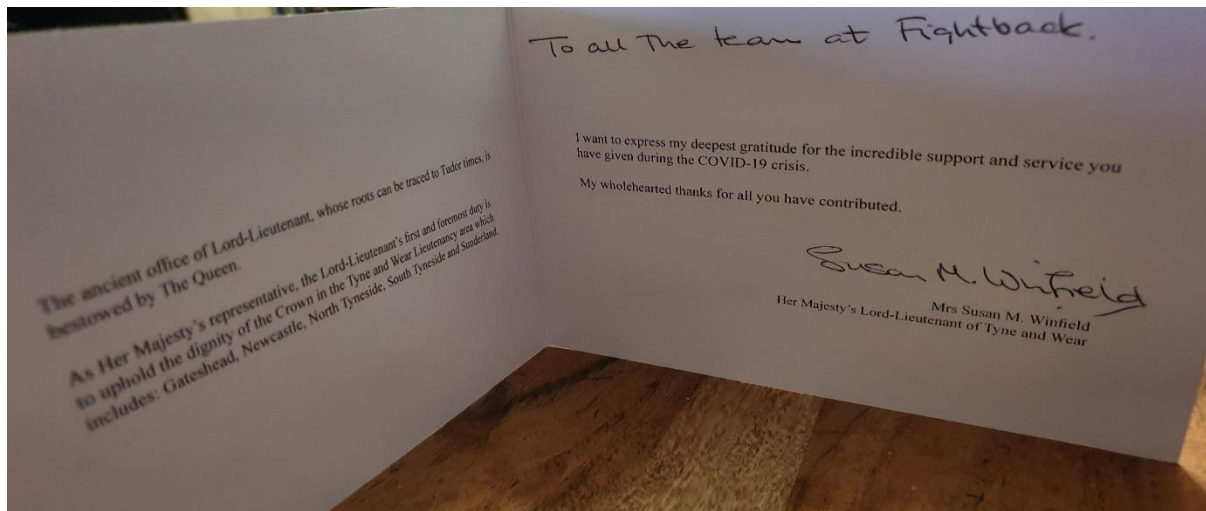 The ancient office of Lord-Lieutenant, whose roots can be traced to Tudor times, is
bestowed by The Queen.
As Her Majesty's representative, the Lord-Lieutenant's first and foremost duty is
to uphold the dignity of the Crown in the Tyne and Wear Lieutenancy area which
includes: Gateshead, Newcastle, North Tyneside, South Tyneside and Sunderland.
To all The team at Fightback.
I want to express my deepest gratitude for the incredible support and service you
have given during the COVID-19 crisis.
My wholehearted thanks for all you have contributed.
Susan M. Winfield
Mrs Susan M. Winfield
Her Majesty's Lord-Lieutenant of Tyne and Wear